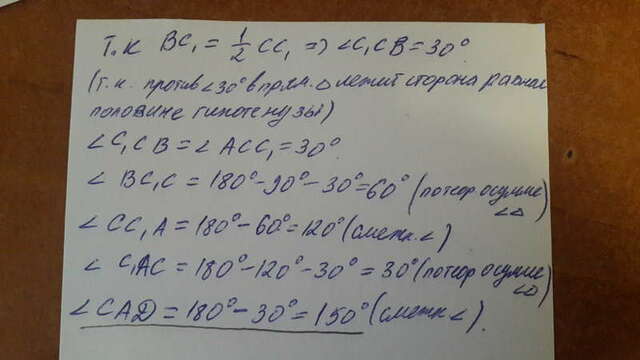 Т.к BC₁ = 1/2 CC₁ ⇒ ∠C₁CB = 30°
(т.к. против ∠30° в прям. △ лежит сторона равная
половине гипотенузы)
∠C₁CB = ∠ACC₁ = 30°
∠BC₁C = 180° - 90° - 30° = 60° (по теор о сумме ∠△)
∠CC₁A = 180° - 60° = 120° (смежн. ∠)
∠C₁AC = 180° - 120° - 30° = 30° (по теор о сумме ∠△)
∠CAD = 180° - 30° = 150° (смежн ∠).